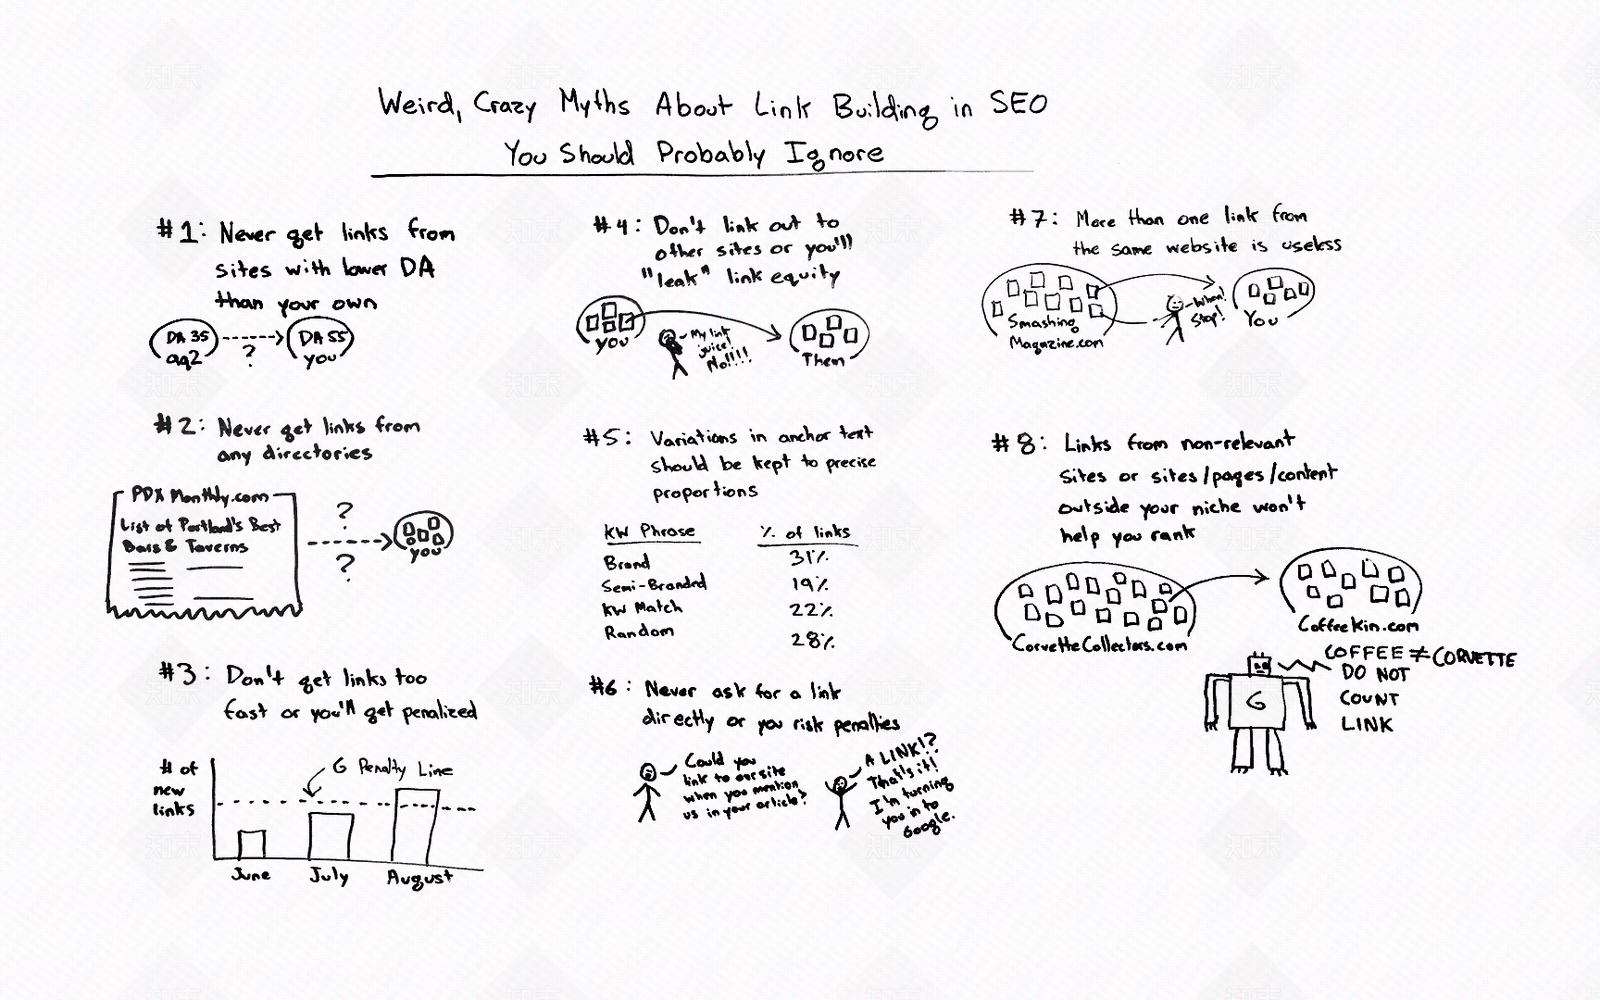 Weird, Crazy Myths About Link Building in SEO
You Should Probably Ignore
#1: Never get links from
sites with lower DA
than your own
DA 35
aq2
?
DA 55
you
#2: Never get links from
any directories
PDX Monthly.com
List of Portland's Best
Bars & Taverns
?
?
you
#3: Don't get links too
fast or you'll get penalized
# of
new
links
G Penalty Line
June
July
August
#4: Don't link out to
other sites or you'll
"leak" link equity
you
My link
juice!
No!!!!
Them
#5: Variations in anchor text
should be kept to precise
proportions
KW Phrase % of links
Brand 31%
Semi-Branded 19%
KW Match 22%
Random 28%
#6: Never ask for a link
directly or you risk penalties
Could you
link to our site
when you mention
us in your article?
A LINK!?
That's it!
I'm turning
you in to
Google.
#7: More than one link from
the same website is useless
Smashing
Magazine.com
Stop!
You
#8: Links from non-relevant
sites or sites/pages/content
outside your niche won't
help you rank
CorvetteCollectors.com
CoffeeKin.com
G
COFFEE ≠ CORVETTE
DO NOT
COUNT
LINK